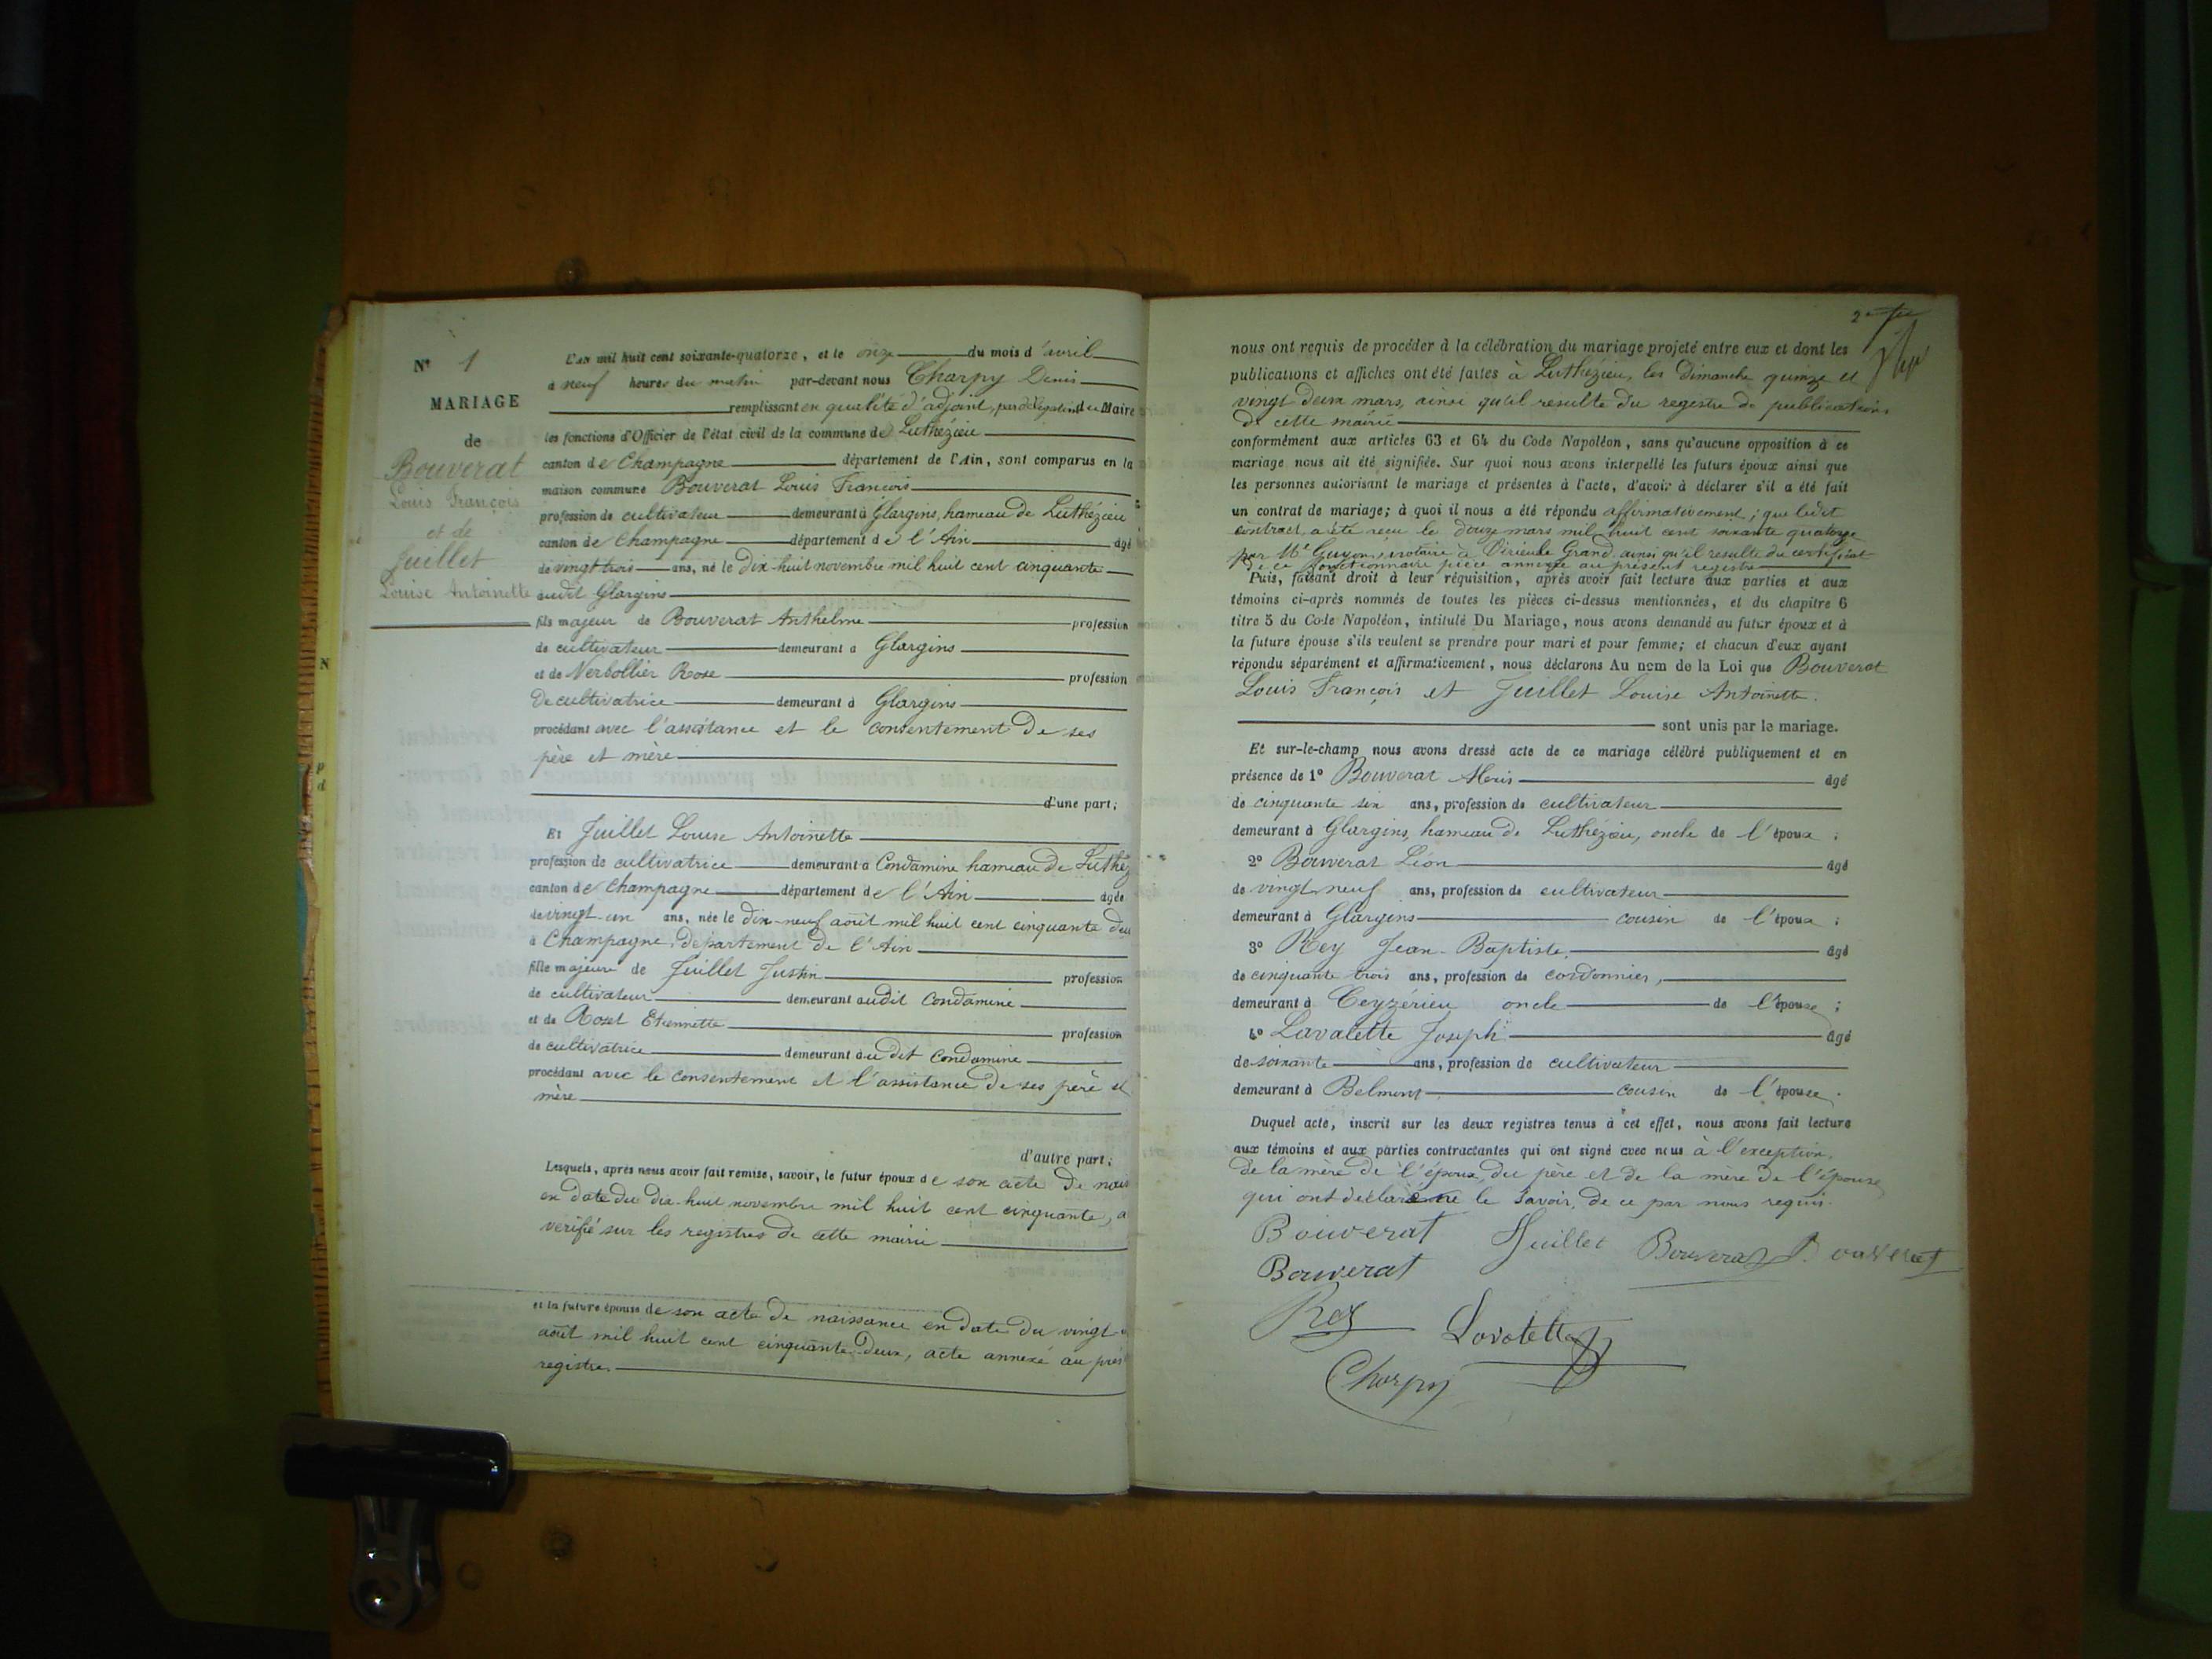 N° 1
MARIAGE
de
Bouverat
Louis François
et de
Juillet
Louise Antoinette
L'an mil huit cent soixante-quatorze, et le onze du mois d'avril
à neuf heures du matin par-devant nous Charpy Denis
remplissant en qualité d'adjoint, par délégation du Maire
les fonctions d'Officier de l'état civil de la commune de Luthézieu
canton de Champagne département de l'Ain, sont comparus en la
maison commune Bouverat Louis François
profession de cultivateur demeurant à Glargins, hameau de Luthézieu
canton de Champagne département de l'Ain âgé
de vingt trois ans, né le dix-huit novembre mil huit cent cinquante
audit Glargins
fils majeur de Bouverat Anthelme profession
de cultivateur demeurant à Glargins
et de Nerbollier Rose profession
de cultivatrice demeurant à Glargins
procédant avec l'assistance et le consentement de ses
père et mère
d'une part;
Et Juillet Louise Antoinette
profession de cultivatrice demeurant à Condamine hameau de Luthéz
canton de Champagne département de l'Ain âgée
de vingt-un ans, née le dix-neuf août mil huit cent cinquante deu
à Champagne, département de l'Ain
fille majeure de Juillet Justin profession
de cultivateur demeurant audit Condamine
et de Roset Etiennette profession
de cultivatrice demeurant au dit Condamine
procédant avec le consentement et l'assistance de ses père et
mère
d'autre part;
Lesquels, après nous avoir fait remise, savoir, le futur époux de son acte de nais
en date du dix-huit novembre mil huit cent cinquante, a
vérifié sur les registres de cette mairie
et la future épouse de son acte de naissance en date du vingt
août mil huit cent cinquante-deux, acte annexé au prés
registre.
nous ont requis de procéder à la célébration du mariage projeté entre eux et dont les
publications et affiches ont été faites à Luthézieu, les dimanche quinze et
vingt deux mars, ainsi qu'il resulte du registre de publications
de cette mairie
conformément aux articles 63 et 64 du Code Napoléon, sans qu'aucune opposition à ce
mariage nous ait été signifiée. Sur quoi nous avons interpellé les futurs époux ainsi que
les personnes autorisant le mariage et présentes à l'acte, d'avoir à déclarer s'il a été fait
un contrat de mariage; à quoi il nous a été répondu affirmativement; que ledit
contract a été reçu le douze mars mil huit cent soixante quatorze
par Me Guyon, notaire à Virieu le Grand, ainsi qu'il resulte du certificat
de ce fonctionnaire pièce annexée au présent registre
Puis, faisant droit à leur réquisition, après avoir fait lecture aux parties et aux
témoins ci-après nommés de toutes les pièces ci-dessus mentionnées, et du chapitre 6
titre 5 du Code Napoléon, intitulé Du Mariage, nous avons demandé au futur époux et à
la future épouse s'ils veulent se prendre pour mari et pour femme; et chacun d'eux ayant
répondu séparément et affirmativement, nous déclarons Au nom de la Loi que Bouverat
Louis François et Juillet Louise Antoinette.
sont unis par le mariage.
Et sur-le-champ nous avons dressé acte de ce mariage célébré publiquement et en
présence de 1° Bouverat Alexis âgé
de cinquante six ans, profession de cultivateur
demeurant à Glargins, hameau de Luthézieu, oncle de l'époux;
2° Bouverat Léon âgé
de vingt neuf ans, profession de cultivateur
demeurant à Glargins cousin de l'époux;
3° Rey Jean-Baptiste, âgé
de cinquante trois ans, profession de cordonnier,
demeurant à Ceyzérieu oncle de l'épouse;
4° Lavalette Joseph âgé
de soixante ans, profession de cultivateur
demeurant à Belmont cousin de l'épouse.
Duquel acte, inscrit sur les deux registres tenus à cet effet, nous avons fait lecture
aux témoins et aux parties contractantes qui ont signé avec nous à l'exception
de la mère de l'époux, du père et de la mère de l'épouse
qui ont déclaré ne le savoir, de ce par nous requis.
Bouverat Juillet Bouverat Bouverat
Bouverat
Rey Lavalette
Charpy